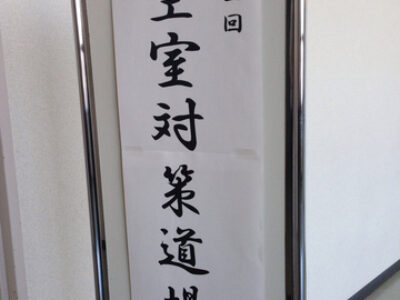 回
室対策道